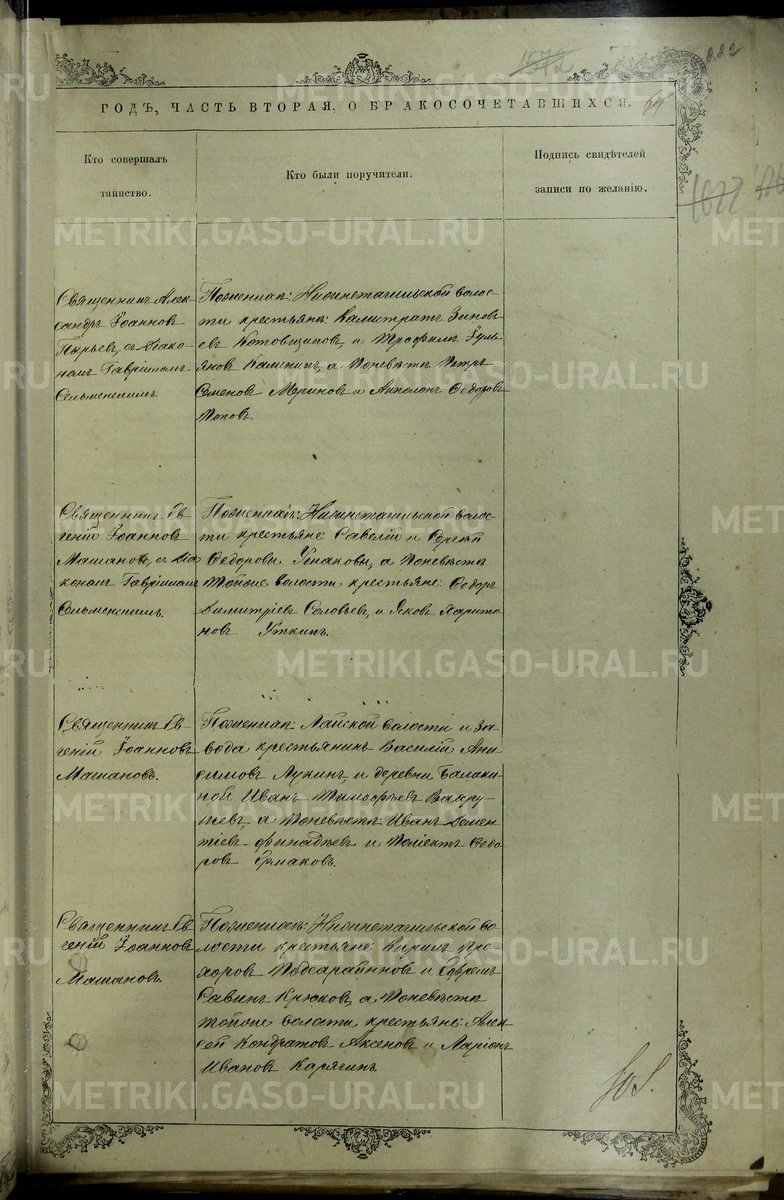 1572
882
ГОДЪ, ЧАСТЬ ВТОРАЯ, О БРАКОСОЧЕТАВШИХСЯ.
64
Кто совершалъ
таинство.
Кто были поручители.
Подпись свидѣтелей
записи по желанію.
1077
METRIKI.GASO-URAL.RU
Священникъ Алек-
сандръ Іоанновъ
Пырьевъ, съ діако-
номъ Гавріиломъ
Сельменскимъ.
По женихѣ: Нижнетагильской волос-
ти крестьяне: Калистратъ Зиновь-
евъ Котовщиковъ, и Трофимъ Улья-
новъ Калининъ, а по невѣстѣ Петръ
Семеновъ Мериновъ и Апполонъ Ѳедоровъ
Поповъ.
Священникъ Ев-
геній Іоанновъ
Машановъ, съ діа
кономъ Гавріиломъ
Сельменскимъ.
По женихѣ: Нижнетагильской волос-
ти крестьяне: Савелій и Сергѣй
Ѳедоровы Ушаковы, а по невѣстѣ
тойже волости крестьяне: Ѳедоръ
Димитріевъ Соловьевъ, и Яковъ Харито
новъ Уткинъ.
Священникъ Ев-
геній Іоанновъ
Машановъ.
По женихѣ: Лайской волости и за-
вода крестьянинъ Василій Ани-
симовъ Лукинъ, и деревни Балаки-
ной Иванъ Тимофѣевъ Вахру-
шевъ, а по невѣстѣ: Иванъ Демен-
тіевъ и Поліектъ Ѳедо
ровъ Ермаковъ.
Священникъ Ев-
геній Іоанновъ
Машановъ.
По женихѣ: Нижнетагильской во-
лости крестьяне: Кирилъ Про-
хоровъ Подсарайниковъ и Ефремъ
Савинъ Крюковъ, а по невѣстѣ
тойже волости крестьяне: Алек-
сѣй Кондратовъ Аксеновъ и Ларіонъ
Ивановъ Карягинъ.